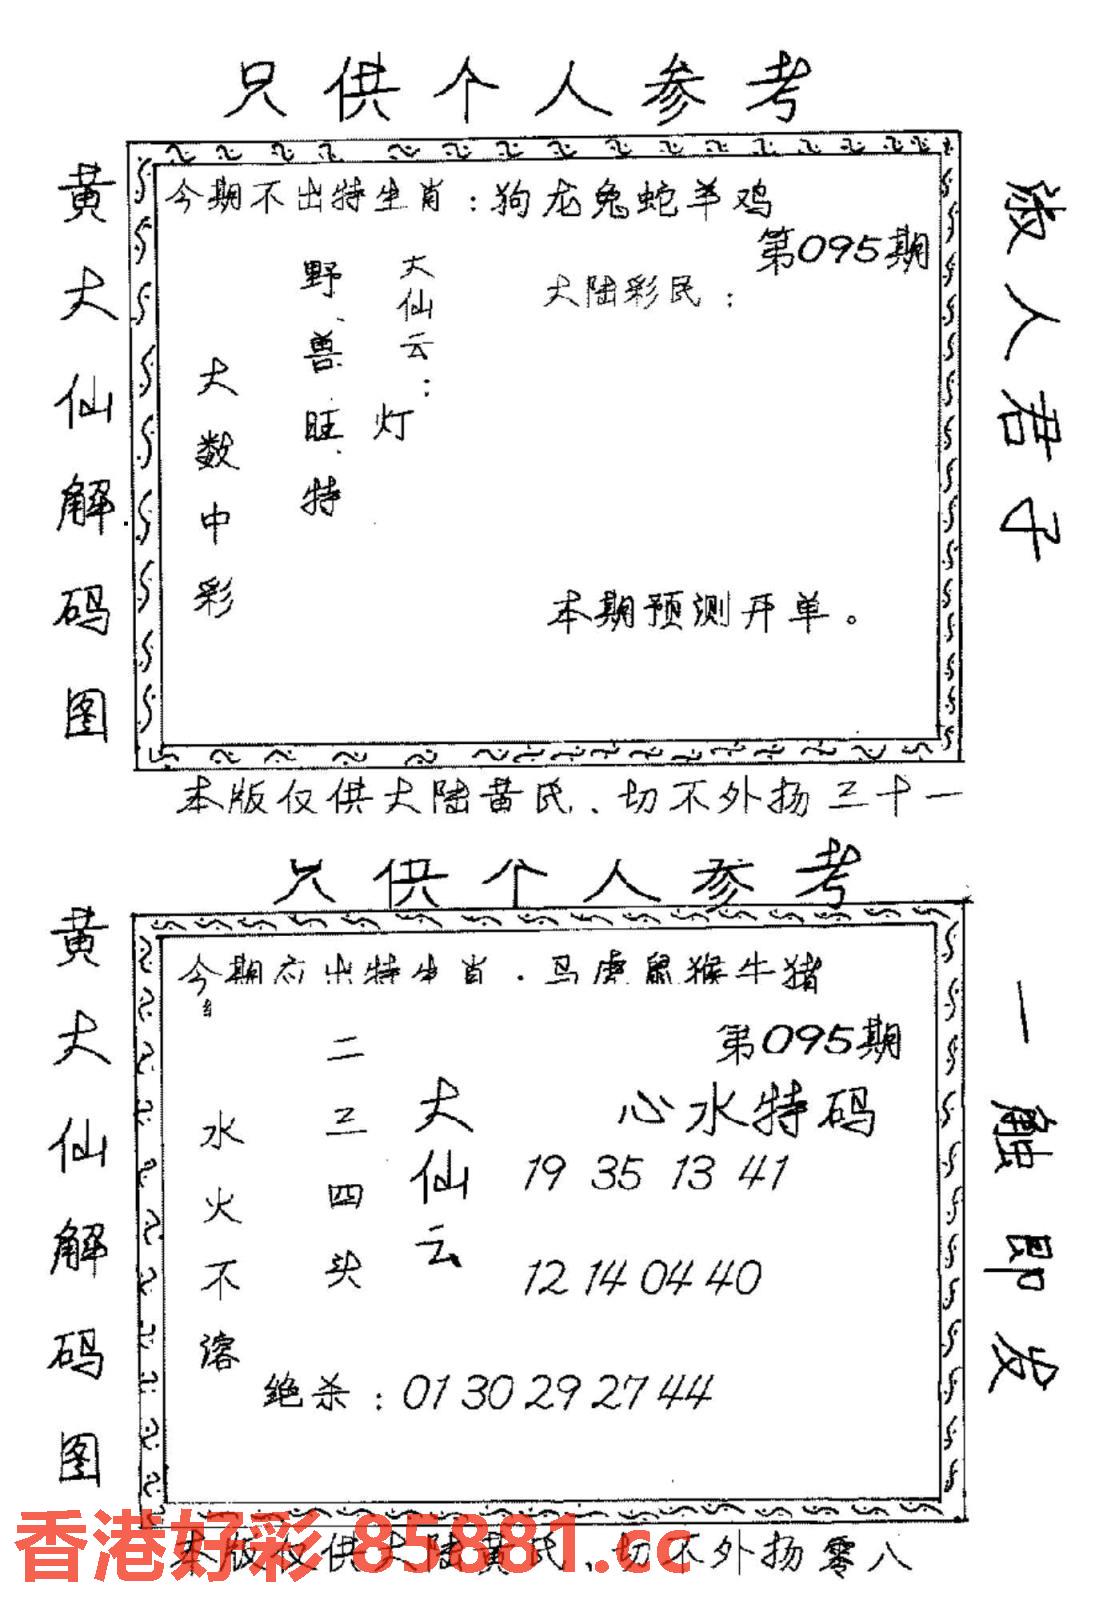 只供个人参考
黄大仙解码图
今期不出特生肖：狗龙兔蛇羊鸡
第095期
大陆彩民：
大仙云：
灯
野兽旺特
大数中彩
本期预测开单。
淑人君子
本版仅供大陆黄氏、切不外扬三十一
只供个人参考
黄大仙解码图
今期应出特生肖：马虎鼠猴牛猪
第095期
心水特码
大仙云
19 35 13 41
12 14 04 40
二三四头
水火不溶
绝杀：01 30 29 27 44
一触即发
本版仅供大陆黄氏、切不外扬零八
香港好彩 85881.cc